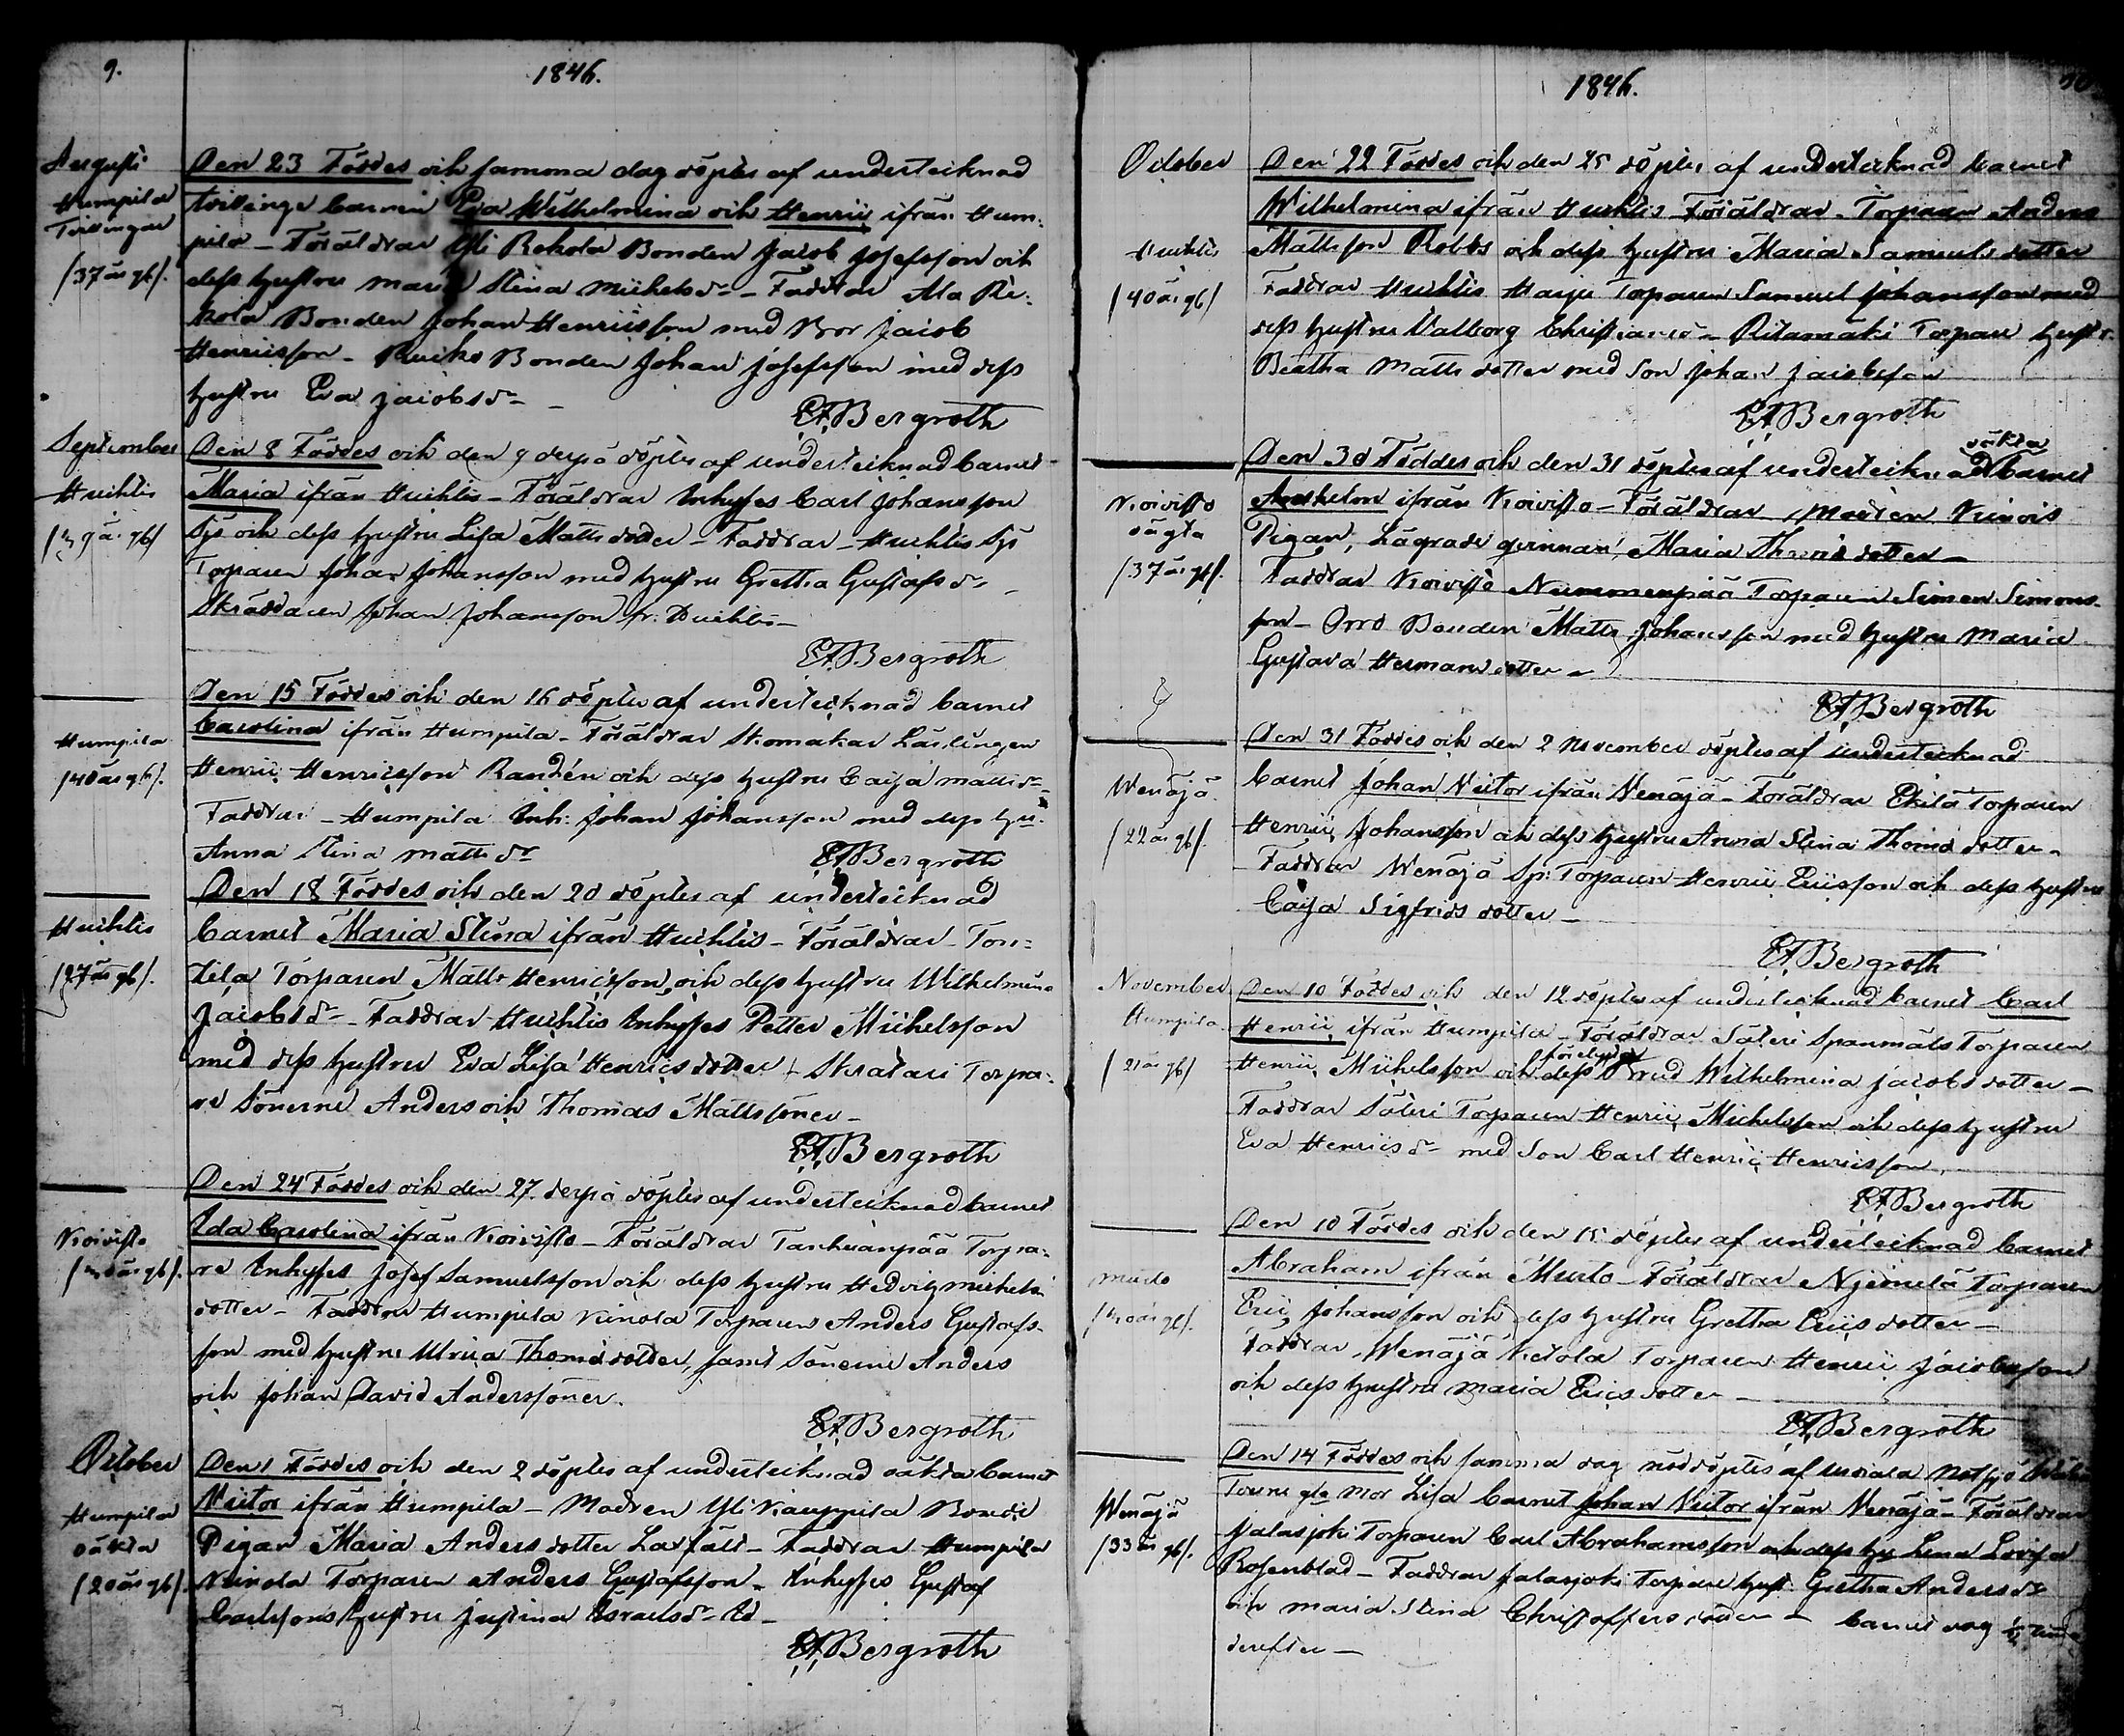 9.
1846.
Augusti
Humpila
Tvillingar
(37 år gl).
Den 23 Föddes och samma dag döptes af undertecknad
tvillinge barnen Eva Wilhelmina och Henric ifrån Hum-
pila - Föräldrar Yli Rekola Bonden Jacob Josefsson och
dess hustru Maria Stina Michelsdr - Faddrar Ala Re-
kola Bonden Johan Henricsson med Bror Jacob
Henricsson - Bonden Johan Josefsson med dess
hustru Eva Jacobsdr -
EABergroth
September
Huhtis
Den 8 Föddes och den 9 derpå döptes af undertecknad barnet
Maria ifrån Huhtis - Föräldrar Inhyses Carl Johansson
och dess hustru Lisa Mattsdotter - Faddrar - Huhtis
Torparen Johan Johansson med hustru Gretha Gustafsdr
Skräddaren Johan Johansson fr. Huhtis -
EABergroth
Humpila
(40 år gl).
Den 15 Föddes och den 16 döptes af undertecknad barnet
Carolina ifrån Humpila - Föräldrar Skomakar Lärlingen
Henric Henricsson Randén och dess hustru Caisa Mattsdr
Faddrar - Humpila Inh: Johan Johansson med dess hu:
Anna Stina Mattsdr
EABergroth
Huhtis
(27 år gl).
Den 18 Föddes och den 20 döptes af undertecknad
barnet Maria Stina ifrån Huhtis - Föräldrar - Ton-
tila Torparen Matts Henricsson och dess hustru Wilhelmina
Jacobsdr - Faddrar Huhtis Inhyses Petter Michelsson
med dess hustru Eva Lisa Henricsdotter + Skratari Torpa-
re Sönerne Anders och Thomas Mattssöner -
EABergroth
Koivisto
Den 24 Föddes och den 27 derpå döptes af undertecknad barnet
Ida Carolina ifrån Koivisto - Föräldrar Tanhuanpää Torpa-
re Inhyses Josef Samuelsson och dess hustru Hedvig Michels
dotter - Faddrar Humpila Torparen Anders Gustafs-
son med hustru Ulrica Thomædotter, samt Sönerne Anders
och Johan David Anderssöner.
EABergroth
October
Humpila
oäkta
(20 år gl).
Den 1 Föddes och den 2 döptes af undertecknad oäkta barnet
Victor ifrån Humpila - Modren Yli Kauppila Bonde
Pigan Maria Andersdotter - Faddrar Humpila
Torparen Anders Gustafsson - Inhyses Gustaf
Carlssons hustru Justina Israelsdr
EABergroth
1846.
October
Huhtis
(40 år gl)
Den 22 Föddes och den 25 döptes af undertecknad barnet
Wilhelmina ifrån Huhtis - Föräldrar - Torparen Anders
Mattsson Robbs och dess hustru Maria Samuelsdotter
Faddrar Huhtis Harju Torparen Samuel Johansson med
dess hustru Walborg Christiansd - Ritamäki Torpare hustr.
Beatha Mattsdotter med Son Johan Jacobsson
EABergroth
Koivisto
oägta
(37 år gl).
Den 30 Föddes och den 31 döptes af undertecknad oäkta barnet
Anshelm ifrån Koivisto - Föräldrar, Modren
Pigan, Lägrade qvinnan, Maria dotter -
Faddrar Koivisto Nummenpää Torparen Simon Simons-
son - Orro Bonden Matts Johansson med hustru Maria
Gustava Hermansdotter -
EABergroth
Wenäjä
(22 år gl).
Den 31 Föddes och den 2 November döptes af undertecknad
barnet Johan Victor ifrån Wenäjä - Föräldrar Torparen
Henric Johansson och dess hustru Anna Stina Thomædotter -
Faddrar Wenäjä Torparen Henric Ericsson och dess hustru
Caisa Sigfridsdotter -
EABergroth
November
Humpila
(21 år gl)
Den 10 Föddes och den 12 döptes af undertecknad barnet Carl
Henric ifrån Humpila - Föräldrar Säteri Torparen
Henric Michelsson och dess med Wilhelmina Jacobsdotter -
Faddrar Säteri Torparen Henric Michelsson och dess hustru
Eva Henricsdr med Son Carl Henric Henricsson.
EABergroth
Murto
Den 10 Föddes och den 15 döptes af undertecknad barnet
Abraham ifrån Murto - Föräldrar Torparen
Eric Johansson och dess hustru Gretha Ericsdotter -
Faddrar, Wenäjä Torparen Henric Jacobsson
och dess hustru Maria Ericsdotter -
EABergroth
Wenäjä
(33 år gl).
Den 14 Föddes och samma dag nöddöptes af
gla Mor Lisa barnet Johan Victor ifrån Wenäjä - Föräldrar
Jalasjoki Torparen Carl Abrahamsson och dess hu Lena Lovisa
Rosenblad - Faddrar Jalasjoki Torpare hust. Gretha Andersdr
och Maria Stina Christoffersdotter - barnet
derefter -